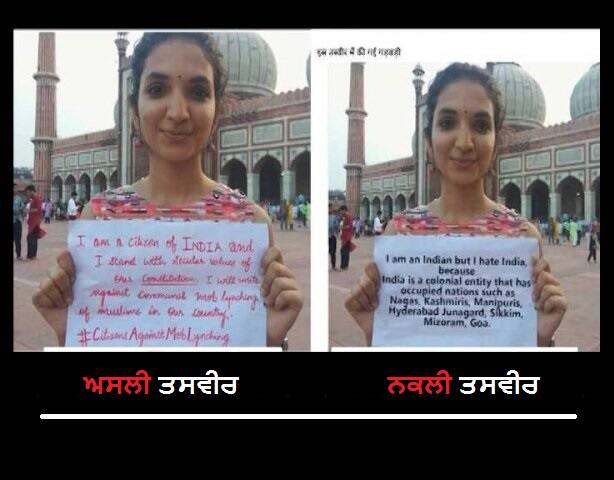 इस तस्वीर मैं की गई गड़बड़ी
I am a citizen of INDIA and
I stand with secular values of
our Constitution. I will write
against communal mob lynching
of muslims in our country.
#CitizensAgainstMobLynching
I am an Indian but I hate India,
because
India is a colonial entity that has
occupied nations such as
Nagas, Kashmiris, Manipuris,
Hyderabad Junagard, Sikkim,
Mizoram, Goa.
ਅਸਲੀ ਤਸਵੀਰ
ਨਕਲੀ ਤਸਵੀਰ